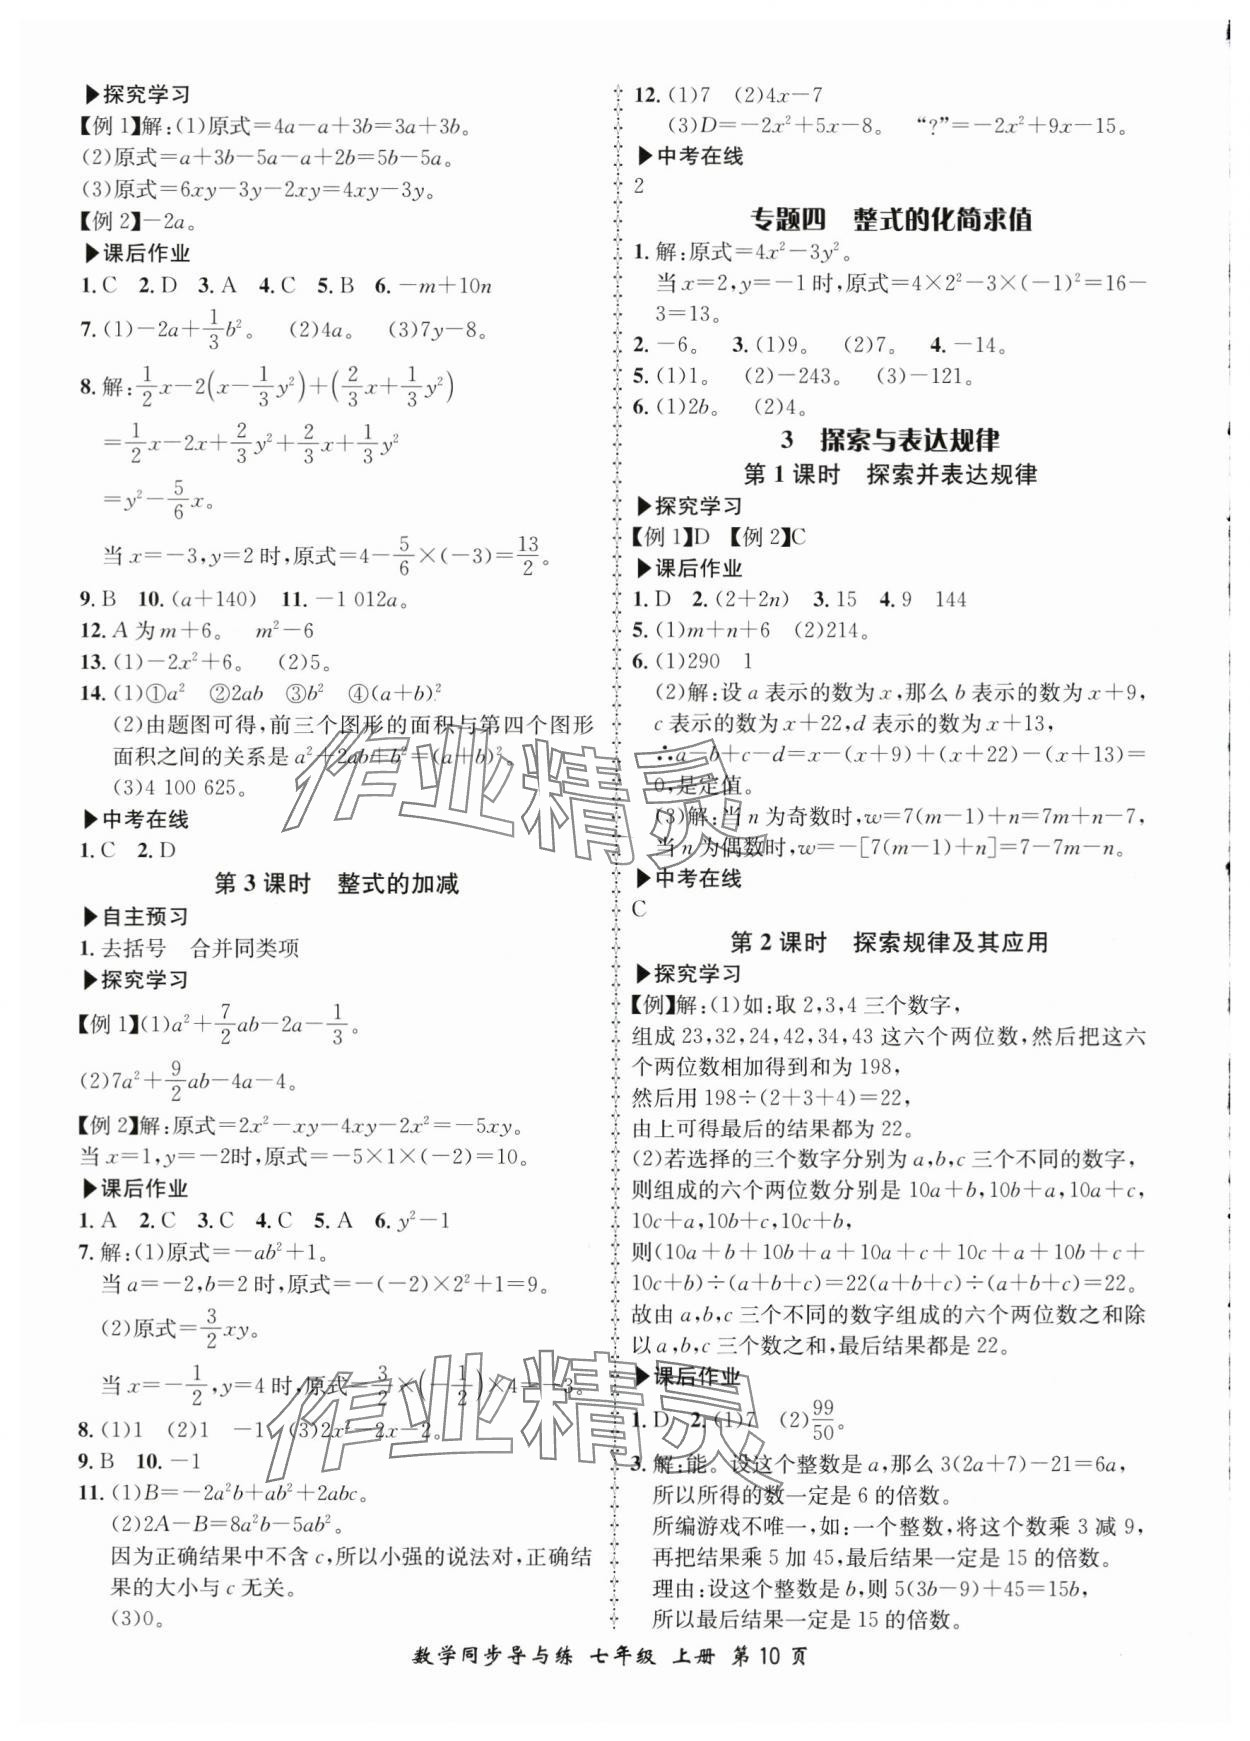 ▶探究学习
【例1】解:(1)原式=4a-a+3b=3a+3b。
(2)原式=a+3b-5a-a+2b=5b-5a。
(3)原式=6xy-3y-2xy=4xy-3y。
【例2】-2a。
▶课后作业
1. C 2. D 3. A 4. C 5. B 6. -m+10n
7. (1)-2a+\frac{1}{3}b²。 (2)4a。 (3)7y-8。
8. 解:\frac{1}{2}x-2(x-\frac{1}{3}y²)+(\frac{2}{3}x+\frac{1}{3}y²)
=\frac{1}{2}x-2x+\frac{2}{3}y²+\frac{2}{3}x+\frac{1}{3}y²
=y²-\frac{5}{6}x。
当x=-3,y=2时,原式=4-\frac{5}{6}×(-3)=\frac{13}{2}。
9. B 10. (a+140) 11. -1 012a。
12. A为m+6。 m²-6
13. (1)-2x²+6。 (2)5。
14. (1)①a² ②2ab ③b² ④(a+b)²
(2)由题图可得,前三个图形的面积与第四个图形
面积之间的关系是a²+2ab+b²=(a+b)²。
(3)4 100 625。
▶中考在线
1. C 2. D
第3课时 整式的加减
▶自主预习
1. 去括号 合并同类项
▶探究学习
【例1】(1)a²+\frac{7}{2}ab-2a-\frac{1}{3}。
(2)7a²+\frac{9}{2}ab-4a-4。
【例2】解:原式=2x²-xy-4xy-2x²=-5xy。
当x=1,y=-2时,原式=-5×1×(-2)=10。
▶课后作业
1. A 2. C 3. C 4. C 5. A 6. y²-1
7. 解:(1)原式=-ab²+1。
当a=-2,b=2时,原式=-(-2)×2²+1=9。
(2)原式=\frac{3}{2}xy。
当x=-\frac{1}{2},y=4时,原式=\frac{3}{2}×(-\frac{1}{2})×4=-3。
8. (1)1 (2)1 -1 (3)2x²-2x-2。
9. B 10. -1
11. (1)B=-2a²b+ab²+2abc。
(2)2A-B=8a²b-5ab²。
因为正确结果中不含c,所以小强的说法对,正确结
果的大小与c无关。
(3)0。
12. (1)7 (2)4x-7
(3)D=-2x²+5x-8。 “?”=-2x²+9x-15。
▶中考在线
2
专题四 整式的化简求值
1. 解:原式=4x²-3y²。
当x=2,y=-1时,原式=4×2²-3×(-1)²=16-
3=13。
2. -6。 3. (1)9。 (2)7。 4. -14。
5. (1)1。 (2)-243。 (3)-121。
6. (1)2b。 (2)4。
3 探索与表达规律
第1课时 探索并表达规律
▶探究学习
【例1】D 【例2】C
▶课后作业
1. D 2. (2+2n) 3. 15 4. 9 144
5. (1)m+n+6 (2)214。
6. (1)290 1
(2)解:设a表示的数为x,那么b表示的数为x+9,
c表示的数为x+22,d表示的数为x+13,
∴a-b+c-d=x-(x+9)+(x+22)-(x+13)=
0,是定值。
(3)解:当n为奇数时,w=7(m-1)+n=7m+n-7,
当n为偶数时,w=-[7(m-1)+n]=7-7m-n。
▶中考在线
C
第2课时 探索规律及其应用
▶探究学习
【例】解:(1)如:取2,3,4三个数字,
组成23,32,24,42,34,43这六个两位数,然后把这六
个两位数相加得到和为198,
然后用198÷(2+3+4)=22,
由上可得最后的结果都为22。
(2)若选择的三个数字分别为a,b,c三个不同的数字,
则组成的六个两位数分别是10a+b,10b+a,10a+c,
10c+a,10b+c,10c+b,
则(10a+b+10b+a+10a+c+10c+a+10b+c+
10c+b)÷(a+b+c)=22(a+b+c)÷(a+b+c)=22。
故由a,b,c三个不同的数字组成的六个两位数之和除
以a,b,c三个数之和,最后结果都是22。
▶课后作业
1. D 2. (1)7 (2)\frac{99}{50}。
3. 解:能。设这个整数是a,那么3(2a+7)-21=6a,
所以所得的数一定是6的倍数。
所编游戏不唯一,如:一个整数,将这个数乘3减9,
再把结果乘5加45,最后结果一定是15的倍数。
理由:设这个整数是b,则5(3b-9)+45=15b,
所以最后结果一定是15的倍数。
数学同步导与练 七年级 上册 第10页
作业精灵
作业精灵